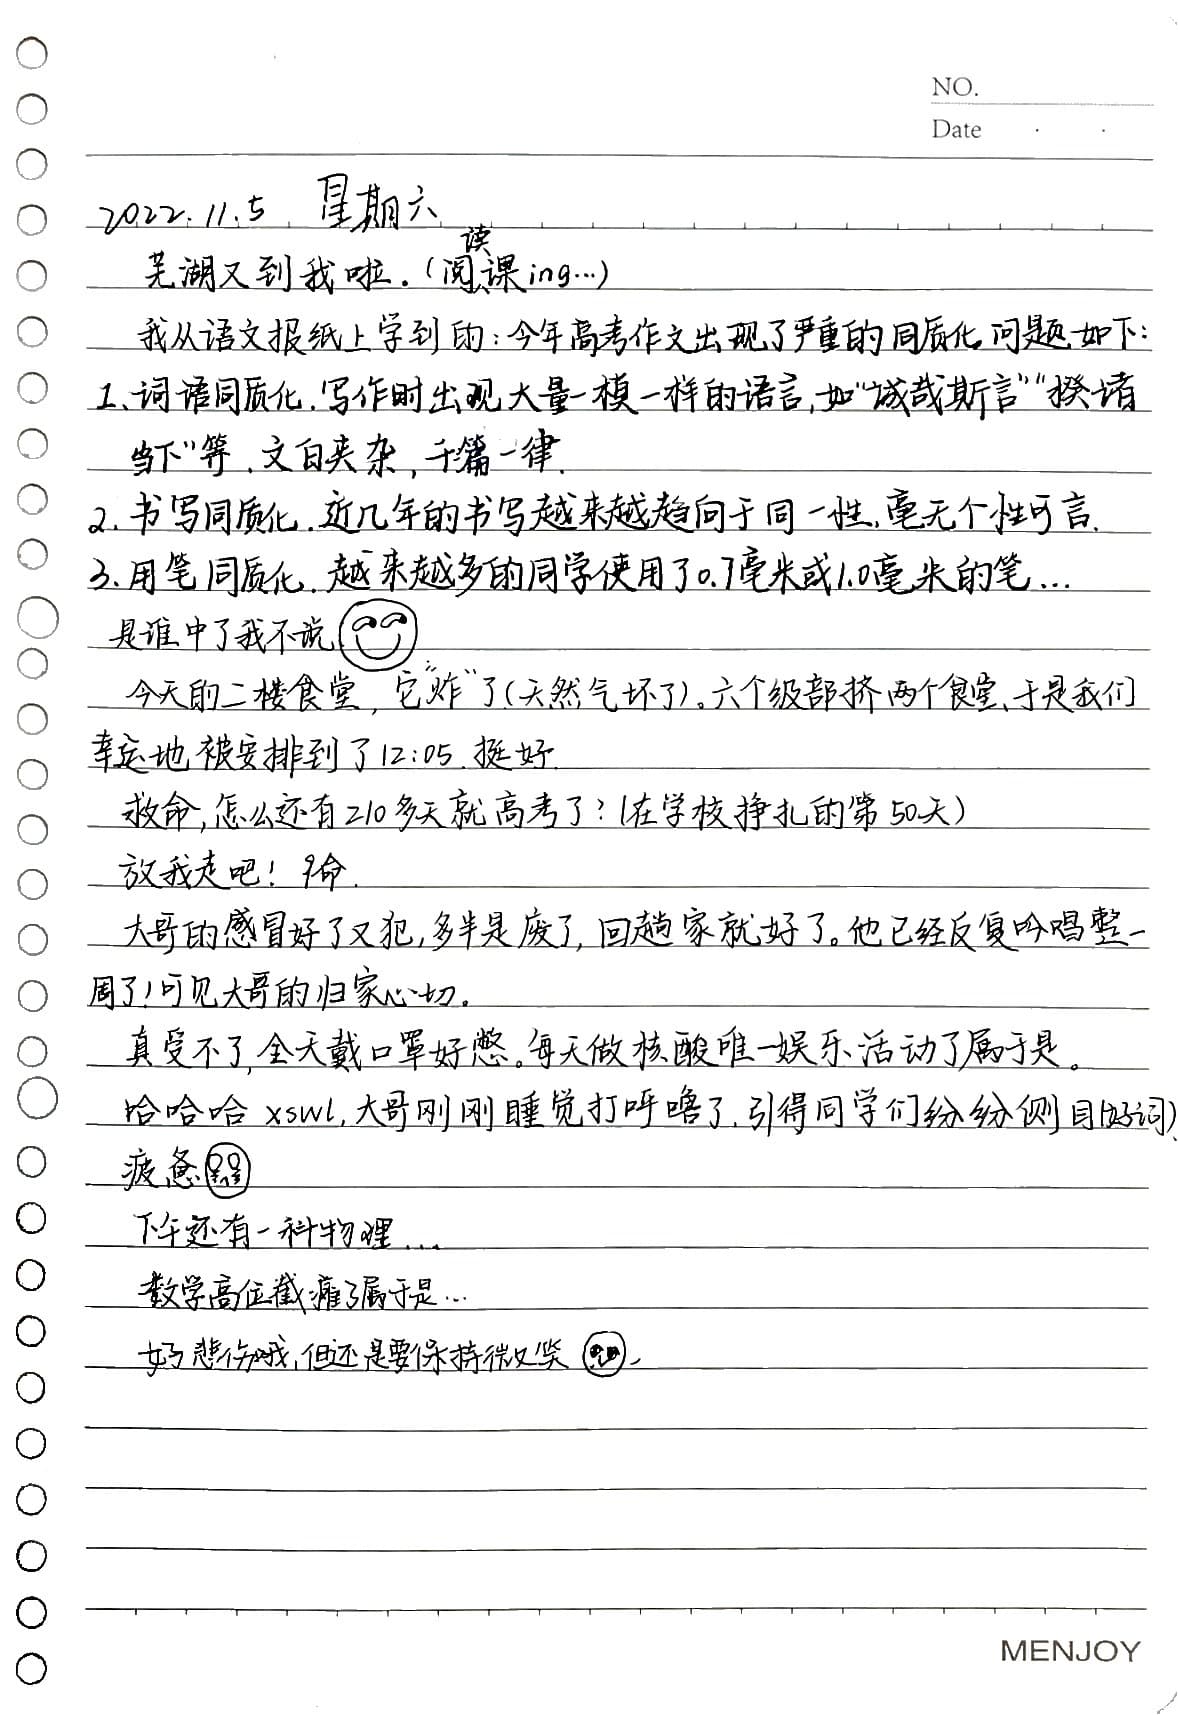 NO.
Date
2022.11.5 星期六
芜湖又到我啦.(阅读课ing…)
我从语文报纸上学到的:今年高考作文出现了严重的同质化.问题如下:
1、词语同质化.写作时出现大量一模一样的语言,如“诚哉斯言”“揆诸
当下”等.文白夹杂,千篇一律.
2.书写同质化.近几年的书写越来越趋向于同一性、毫无个性可言.
3.用笔同质化.越来越多的同学使用了0.7毫米或1.0毫米的笔…
是谁中了我不说
今天的二楼食堂,它“炸”了(天然气坏了)。六个级部挤两个食堂、于是我们
幸运地被安排到了12:05.挺好.
救命,怎么还有210多天就高考了?(在学校挣扎的第50天)
放我走吧!9命.
大哥的感冒好了又犯,多半是废了,回趟家就好了。他已经反复吟唱整一
周了!可见大哥的归家心切。
真受不了,全天戴口罩好憋。每天做核酸唯一娱乐活动了属于是。
哈哈哈 xswl,大哥刚刚睡觉打呼噜了.引得同学们纷纷侧目(好词)、
疲惫
下午还有一科物理...
数学高位截瘫了属于是…
好悲伤哦,但还是要保持微笑
MENJOY